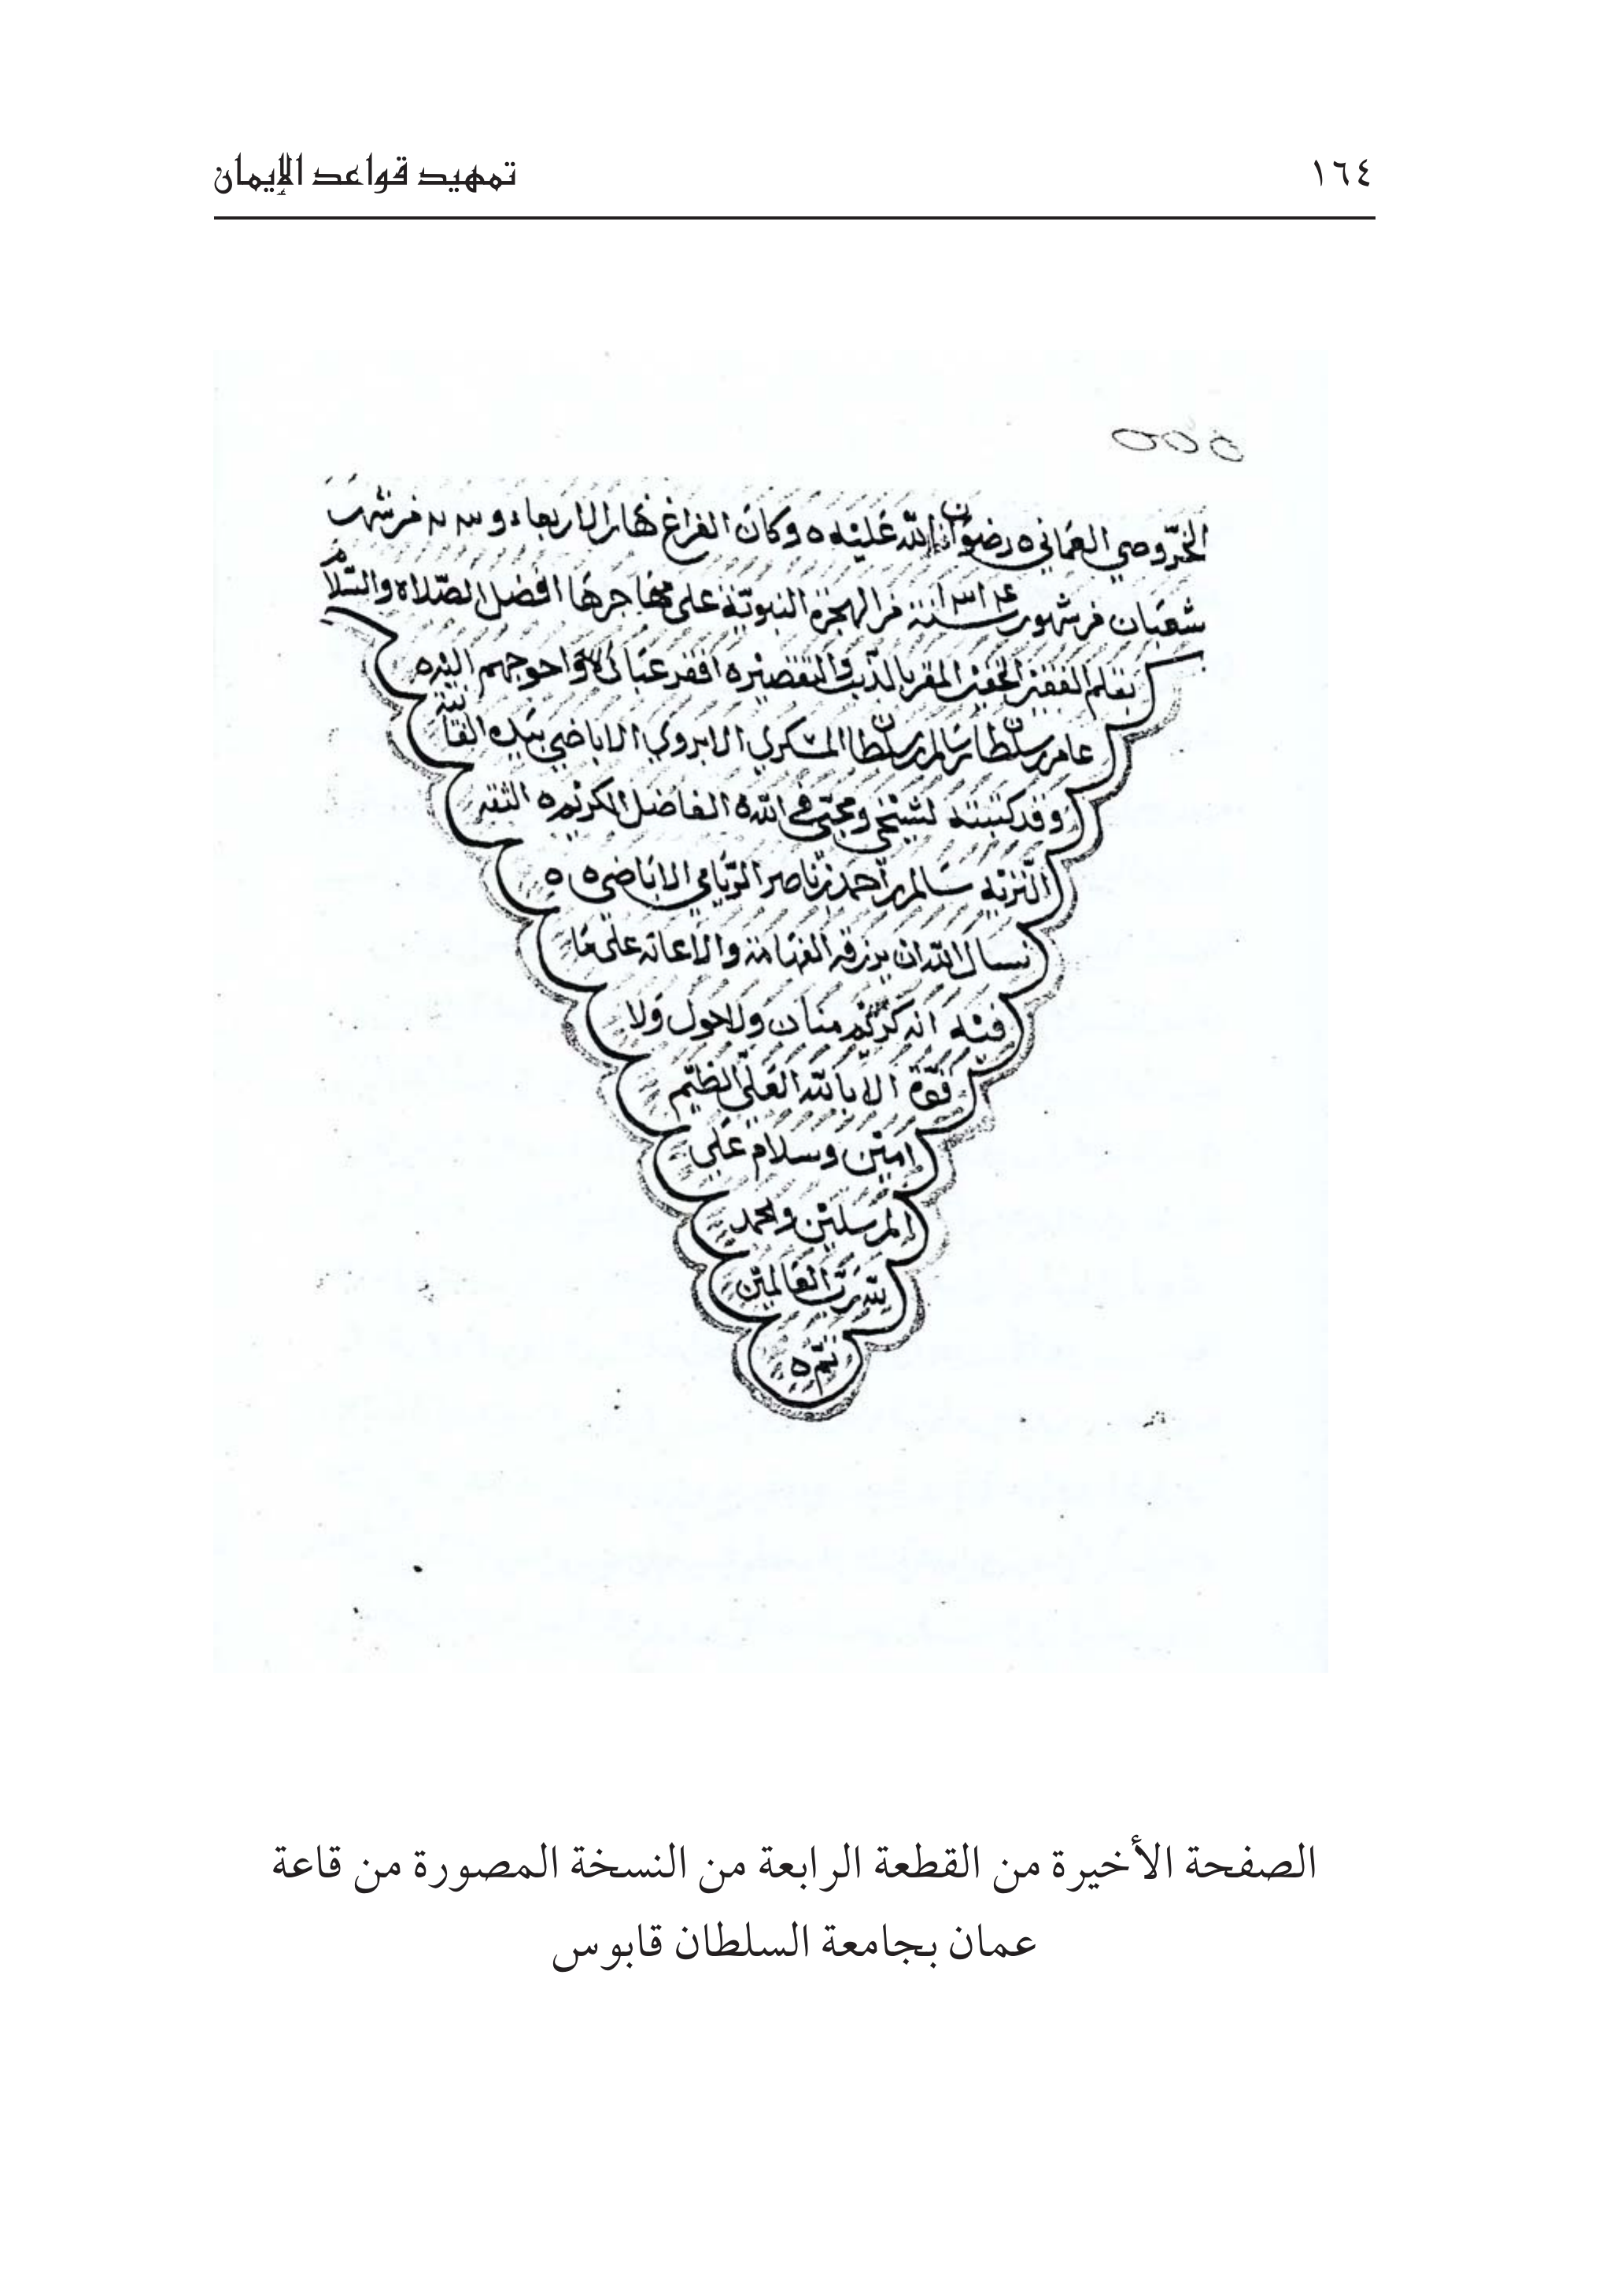 ١٦٤
تمهيد قواعد الإيمان
الخروصي العماني رضوان الله عليه وكان الفراغ نهار الاربعاء و من شهر
شعبان من شهور سنة ١٣١٤ من الهجرة النبوية على مهاجرها افضل الصلاة والسلام
بقلم الفقير الحقير المقر بالذنب والتقصير افقر عباد الله واحوجهم اليه
عامر بن سلطان بن سالم بن سلطان الابروي الاباضي بيده الفانية
وقد كتبته لشيخي ومحبي في الله الفاضل الكريم الثقة
النزيه سالم بن أحمد بن ناصر الريامي الاباضي
نسال الله ان يرزقه الفهامة والاعانة على ما
فيه انه كريم منان ولا حول ولا
قوة الا بالله العلي العظيم
امين وسلام على
المرسلين والحمد
لله رب العالمين
تم
الصفحة الأخيرة من القطعة الرابعة من النسخة المصورة من قاعة
عمان بجامعة السلطان قابوس